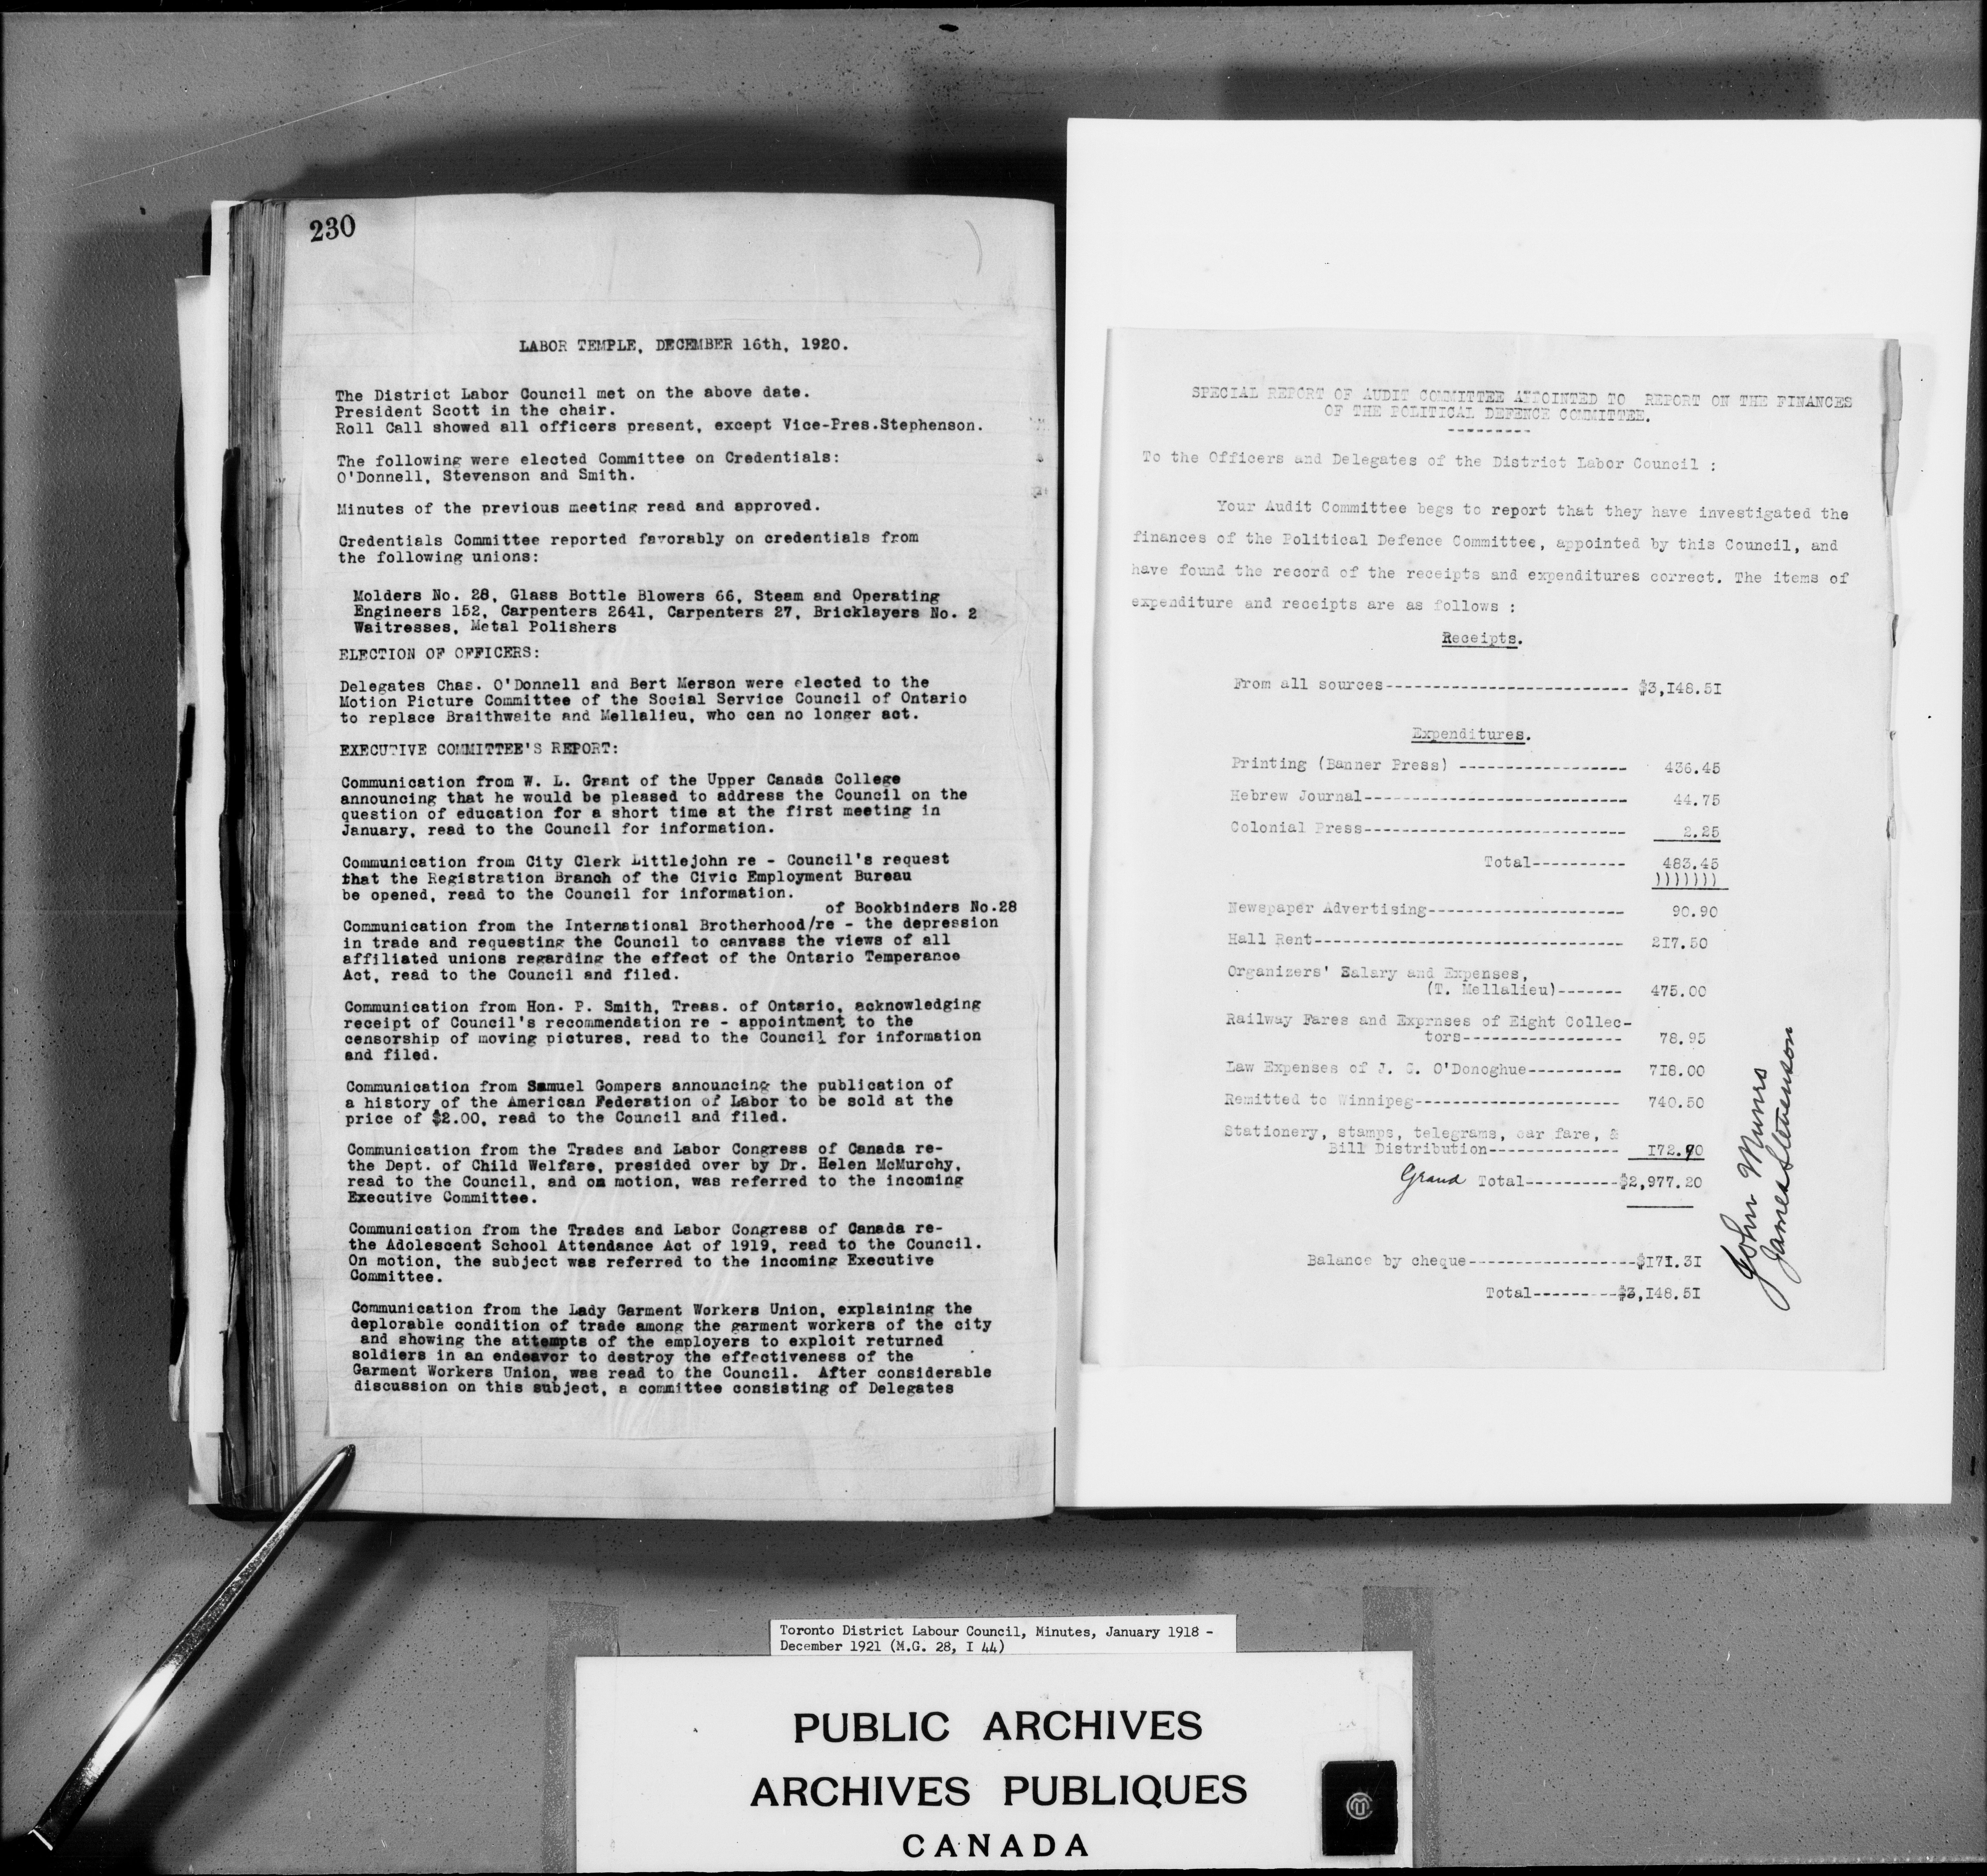 230
LABOR TEMPLE, DECEMBER 16th, 1920.
The District Labor Council met on the above date.
President Scott in the chair.
Roll Call showed all officers present, except Vice-Pres.Stephenson.
The following were elected Committee on Credentials:
O'Donnell, Stevenson and Smith.
Minutes of the previous meeting read and approved.
Credentials Committee reported favorably on credentials from
the following unions:
Molders No. 28, Glass Bottle Blowers 66, Steam and Operating
Engineers 152, Carpenters 2641, Carpenters 27, Bricklayers No. 2
Waitresses, Metal Polishers
ELECTION OF OFFICERS:
Delegates Chas. O'Donnell and Bert Merson were elected to the
Motion Picture Committee of the Social Service Council of Ontario
to replace Braithwaite and Mellalieu, who can no longer act.
EXECUTIVE COMMITTEE'S REPORT:
Communication from W. L. Grant of the Upper Canada College
announcing that he would be pleased to address the Council on the
question of education for a short time at the first meeting in
January, read to the Council for information.
Communication from City Clerk Littlejohn re - Council's request
that the Registration Branch of the Civic Employment Bureau
be opened, read to the Council for information.
of Bookbinders No.28
Communication from the International Brotherhood/re - the depression
in trade and requesting the Council to canvass the views of all
affiliated unions regarding the effect of the Ontario Temperance
Act, read to the Council and filed.
Communication from Hon. P. Smith, Treas. of Ontario, acknowledging
receipt of Council's recommendation re - appointment to the
censorship of moving pictures, read to the Council for information
and filed.
Communication from Samuel Gompers announcing the publication of
a history of the American Federation of Labor to be sold at the
price of $2.00, read to the Council and filed.
Communication from the Trades and Labor Congress of Canada re-
the Dept. of Child Welfare, presided over by Dr. Helen McMurchy,
read to the Council, and on motion, was referred to the incoming
Executive Committee.
Communication from the Trades and Labor Congress of Canada re-
the Adolescent School Attendance Act of 1919, read to the Council.
On motion, the subject was referred to the incoming Executive
Committee.
Communication from the Lady Garment Workers Union, explaining the
deplorable condition of trade among the garment workers of the city
and showing the attempts of the employers to exploit returned
soldiers in an endeavor to destroy the effectiveness of the
Garment Workers Union, was read to the Council. After considerable
discussion on this subject, a committee consisting of Delegates
SPECIAL REPORT OF AUDIT COMMITTEE APPOINTED TO REPORT ON THE FINANCES
OF THE POLITICAL DEFENCE COMMITTEE.
---------
To the Officers and Delegates of the District Labor Council :
Your Audit Committee begs to report that they have investigated the
finances of the Political Defence Committee, appointed by this Council, and
have found the record of the receipts and expenditures correct. The items of
expenditure and receipts are as follows :
Receipts.
From all sources-------------------------- $3,148.51
Expenditures.
Printing (Banner Press) ------------------ 436.45
Hebrew Journal---------------------------- 44.75
Colonial Press---------------------------- 2.25
Total---------- 483.45
)))))))
Newspaper Advertising--------------------- 90.90
Hall Rent--------------------------------- 217.50
Organizers' Salary and Expenses,
(T. Mellalieu)------- 475.00
Railway Fares and Exprnses of Eight Collec-
tors----------------- 78.95
Law Expenses of J. G. O'Donoghue---------- 718.00
Remitted to Winnipeg---------------------- 740.50
Stationery, stamps, telegrams, car fare, &
Bill Distribution-------------- 172.90
Grand Total----------$2,977.20
Balance by cheque------------------$171.31
Total---------$3,148.51
John Munro
James Stevenson
Toronto District Labour Council, Minutes, January 1918 -
December 1921 (M.G. 28, I 44)
PUBLIC ARCHIVES
ARCHIVES PUBLIQUES
CANADA